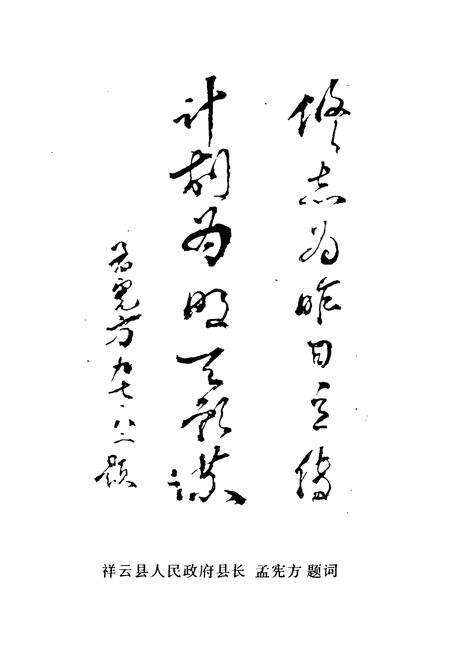 修志为昨日立传
计划为明天彩谱
孟宪方九七.八.二题
祥云县人民政府县长 孟宪方 题词